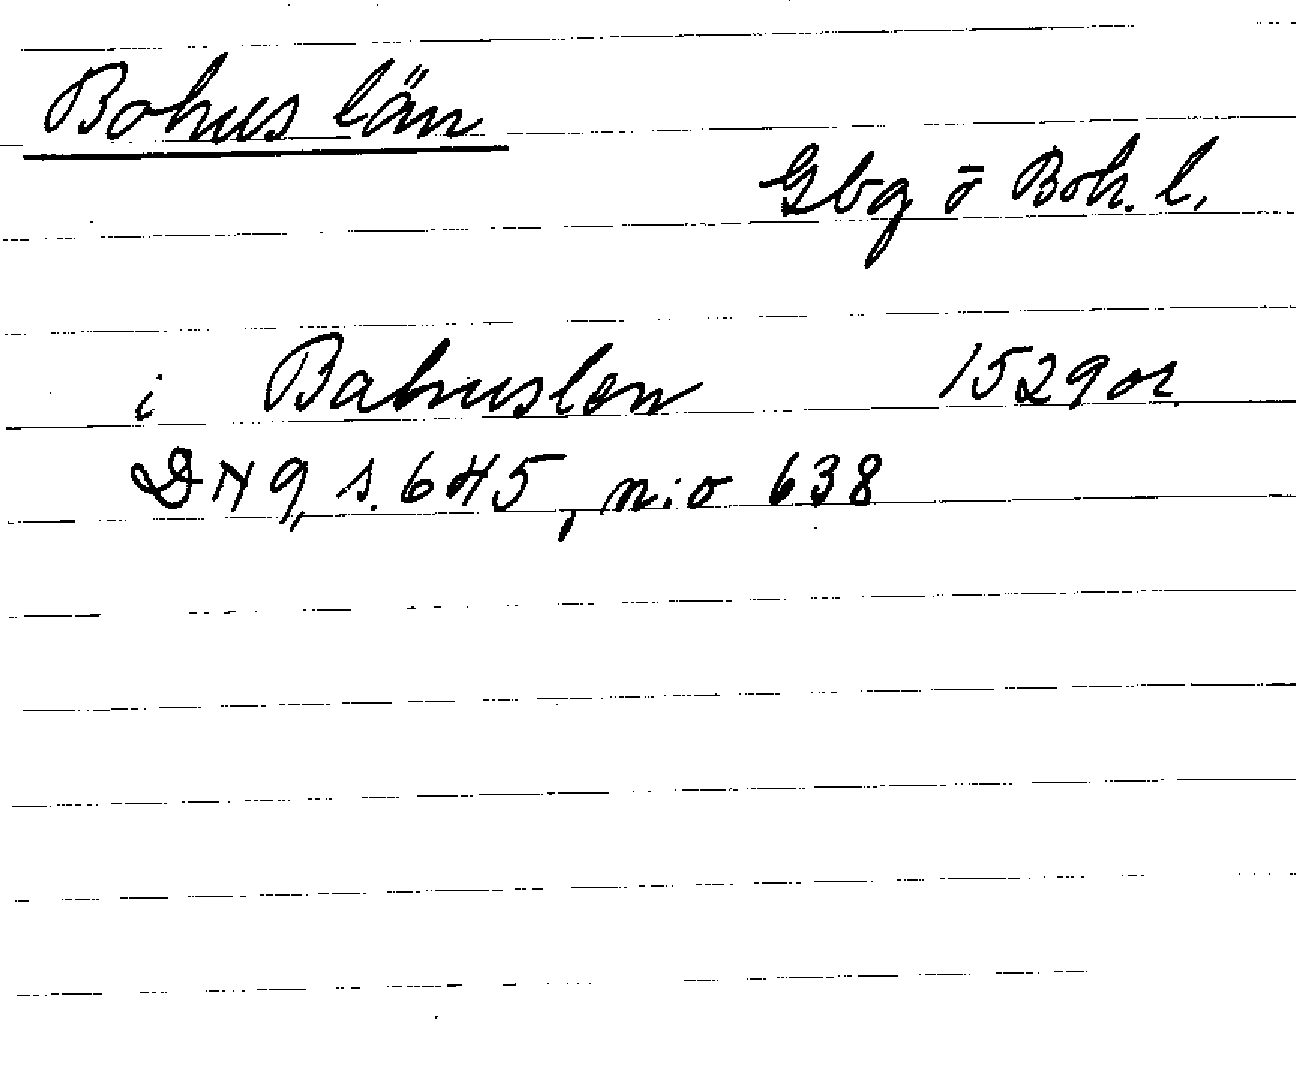 Bohus län
Gbg o Boh. l.
i Bahuslen 1529 or.
DN 9, s. 645, n:o 638